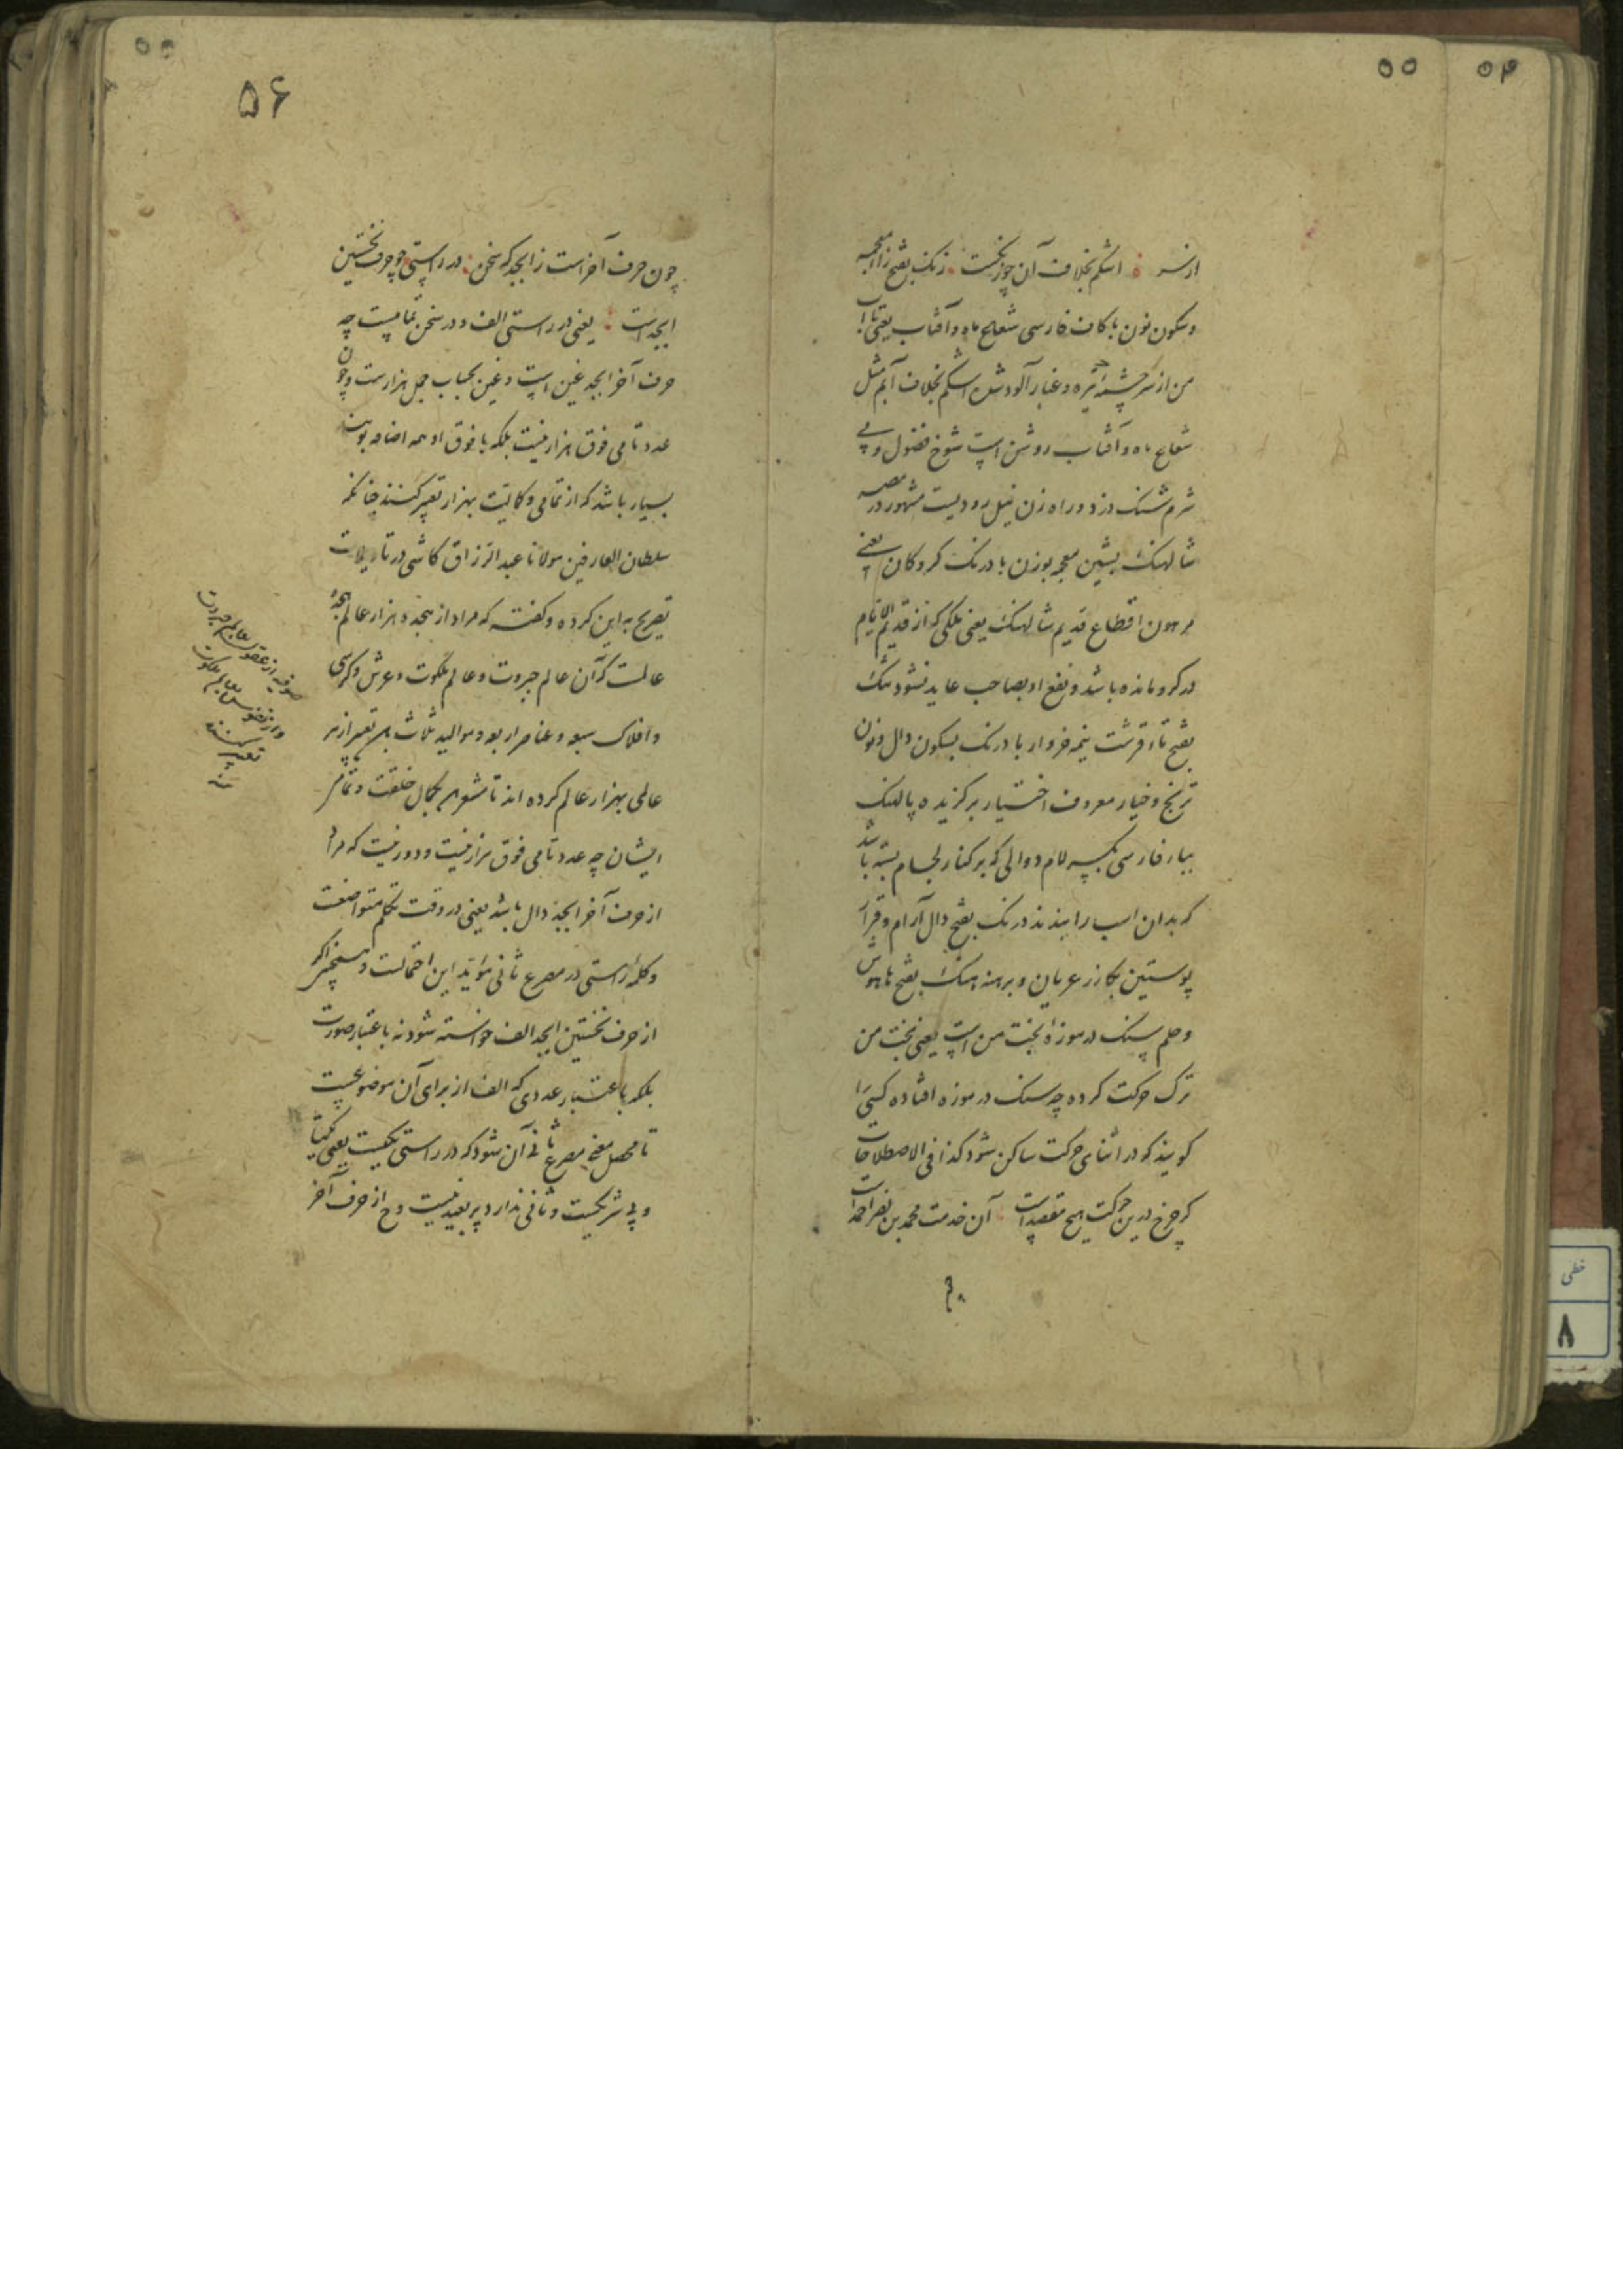 ۵۴
۵۵
از سر اشکم بخلاف آن چوز نکست زنک بفتح زاء معجمه
و سکون نون با کاف فارسی شعاع ماه و آفتاب یعنی تا آب
من از سرچشمه تیره و غبار آلود شد اشکم بخلاف آبم مثل
شعاع ماه و آفتاب روشن است شوخ فضول و بی
شرم شنک دزد و راه زن نیل رودیست مشهور در مصر
شالهنک بشین معجمه بوزن بادرنک کروکان یعنی
مرهون اقطاع قدیم شالهنک یعنی ملکی که از قدیم الایام
در کرو مانده باشد و نفع او بصاحب عاید نشود تنک
بفتح تاء قرشت نیمه خروار بادرنک بسکون دال و نون
ترنج و خیار معروف اختیار برکزیده پالهنک
بباء فارسی بکسر لام دوالی که بر کنار لجام بسته باشد
که بدان اسب را بندند درنک بفتح دال آرام و قرار
پوستین بکازر عریان و برهنه هنک بفتح ها هوش
و حلم سنک در موزه بخت من است یعنی بخت من
ترک حرکت کرده چه سنک در موزه افتاده کسی را
کویند که در اثنای حرکت ساکن شود کذا فی الاصطلاحات
کر چرخ درین حرکت هیچ مقصد است آن خدمت محمد بن نصر احمد است
خطی
۸
۵۶
چون حرف آخر است ز ابجد که سخن در راستی چو حرف نخستین
ابجد است یعنی در راستی الف و در سخن تمامیست چه
حرف آخر ابجد غین است و غین بحساب جمل هزارست و چون
عدد تامی فوق هزار نیست بلکه ما فوق او همه اضافه بوی است
بسیار باشد که از تمامی و کمالیت بهزار تعبیر کنند چنانکه
سلطان العارفین مولانا عبد الرزاق کاشی در تاویلات
تصریح به این کرده و کفته که مراد از هجده هزار عالم هجده
عالمست که آن عالم جبروت و عالم ملکوت و عرش و کرسی
و افلاک سبعه و عناصر اربعه و موالید ثلاث است تعبیر از هر
عالمی بهزار عالم کرده اند تا مشعر بکمال خلقت و تمامی
ایشان چه عدد تامی فوق هزار نیست و دور نیست که مراد
از حرف آخر ابجد دال باشد یعنی در وقت تکلم متواضعست
و کلمه راستی در مصرع ثانی مؤید این احتمالست و همچنین اگر
از حرف نخستین ابجد الف خواسته شود نه باعتبار صورت
بلکه باعتبار عددی که الف از برای آن موضوعست
تا محصل معنی مصرع ثانی آن شود که در راستی یکیست یعنی یکتا
و بی شریکست و ثانی ندارد پر بعید نیست و ح از حرف آخر
صوفیه از عقول بعالم جبروت
و از نفوس بعالم ملکوت
تعبیر کنند
منه